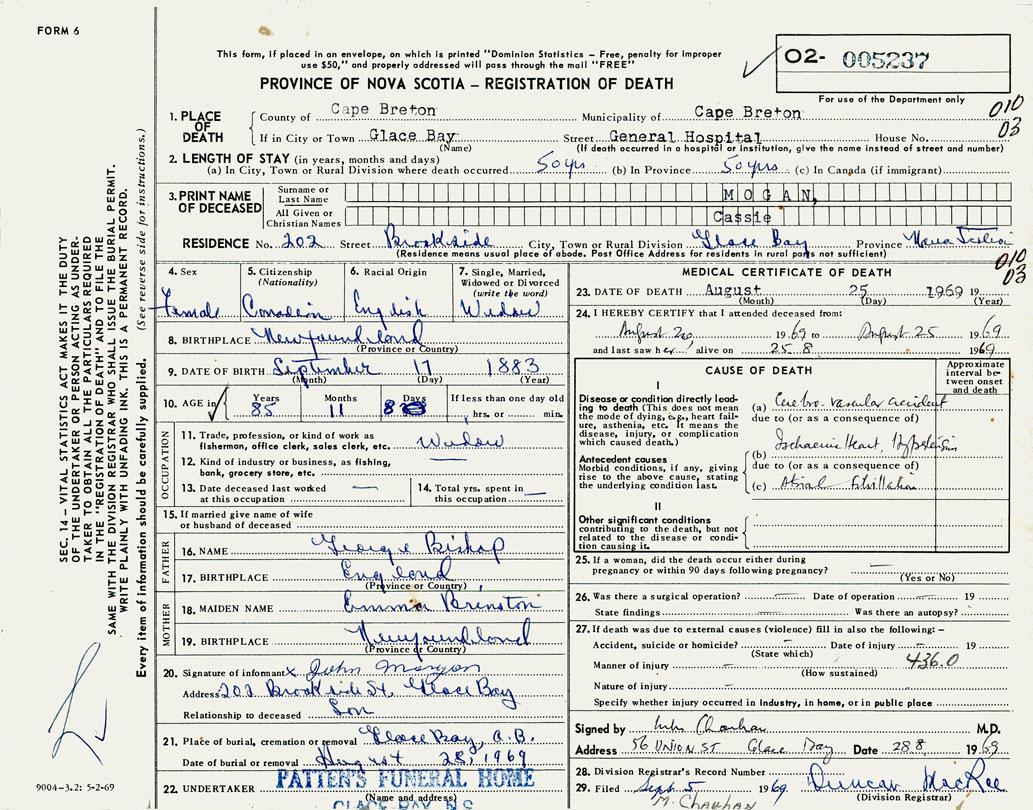 FORM 6
This form, if placed in an envelope, on which is printed "Dominion Statistics – Free, penalty for improper
use $50," and properly addressed will pass through the mail "FREE"
PROVINCE OF NOVA SCOTIA – REGISTRATION OF DEATH
O2- 005237
For use of the Department only
010
03
1. PLACE OF DEATH
County of Cape Breton Municipality of Cape Breton
If in City or Town Glace Bay Street General Hospital House No.
(Name) (If death occurred in a hospital or institution, give the name instead of street and number)
2. LENGTH OF STAY (in years, months and days)
(a) In City, Town or Rural Division where death occurred 50 yrs (b) In Province 50 yrs (c) In Canada (if immigrant)
3. PRINT NAME OF DECEASED
Surname or Last Name MOGAN,
All Given or Christian Names Cassie
RESIDENCE No. 202 Street Brookside City, Town or Rural Division Glace Bay Province Nova Scotia
(Residence means usual place of abode. Post Office Address for residents in rural parts not sufficient)
4. Sex
Female
5. Citizenship
(Nationality)
Canadian
6. Racial Origin
English
7. Single, Married,
Widowed or Divorced
(write the word)
Widow
8. BIRTHPLACE Newfoundland
(Province or Country)
9. DATE OF BIRTH September 17 1883
(Month) (Day) (Year)
10. AGE in
Years Months Days If less than one day old
85 11 8 hrs. or min.
OCCUPATION
11. Trade, profession, or kind of work as
fisherman, office clerk, sales clerk, etc. Widow
12. Kind of industry or business, as fishing,
bank, grocery store, etc.
13. Date deceased last worked
at this occupation
14. Total yrs. spent in
this occupation
15. If married give name of wife
or husband of deceased
FATHER
16. NAME George Bishop
17. BIRTHPLACE England
(Province or Country)
MOTHER
18. MAIDEN NAME Emma Brinston
19. BIRTHPLACE Newfoundland
(Province or Country)
20. Signature of informant x John Morgan
Address 202 Brookside St. Glace Bay
Relationship to deceased Son
21. Place of burial, cremation or removal Glace Bay, C.B.
Date of burial or removal August 28, 1969
22. UNDERTAKER PATTEN'S FUNERAL HOME
(Name and address)
GLACE BAY, N.S.
010
03
MEDICAL CERTIFICATE OF DEATH
23. DATE OF DEATH August 25 1969 19
(Month) (Day) (Year)
24. I HEREBY CERTIFY that I attended deceased from:
August 20, 1969 to August 25 1969
and last saw her alive on 25 8 1969
CAUSE OF DEATH
Approximate
interval be-
tween onset
and death
I
Disease or condition directly lead-
ing to death (This does not mean
the mode of dying, e.g., heart fail-
ure, asthenia, etc. It means the
disease, injury, or complication
which caused death.)
(a) Cerebro-vascular accident
due to (or as a consequence of)
Antecedent causes
Morbid conditions, if any, giving
rise to the above cause, stating
the underlying condition last.
(b) Ischaemic Heart, Hypertension
due to (or as a consequence of)
(c) Atrial Fibrillation
II
Other significant conditions
contributing to the death, but not
related to the disease or condi-
tion causing it.
25. If a woman, did the death occur either during
pregnancy or within 90 days following pregnancy?
(Yes or No)
26. Was there a surgical operation? Date of operation 19
State findings Was there an autopsy?
27. If death was due to external causes (violence) fill in also the following: –
Accident, suicide or homicide? Date of injury 19
(State which) 436.0
Manner of injury
(How sustained)
Nature of injury
Specify whether injury occurred in Industry, in home, or in public place
Signed by M.D.
Address 56 UNION ST Glace Bay Date 28.8. 1969
28. Division Registrar's Record Number
29. Filed Sept. 5 1969 Duncan MacRae
(Division Registrar)
SEC. 14 – VITAL STATISTICS ACT MAKES IT THE DUTY
OF THE UNDERTAKER OR PERSON ACTING AS UNDER-
TAKER TO OBTAIN ALL THE PARTICULARS REQUIRED
IN THE "REGISTRATION OF DEATH" AND TO FILE THE
SAME WITH THE DIVISION REGISTRAR WHO SHALL ISSUE THE BURIAL PERMIT.
WRITE PLAINLY WITH UNFADING INK. THIS IS A PERMANENT RECORD.
Every item of information should be carefully supplied. (See reverse side for instructions.)
9004-3.2: 5-2-69